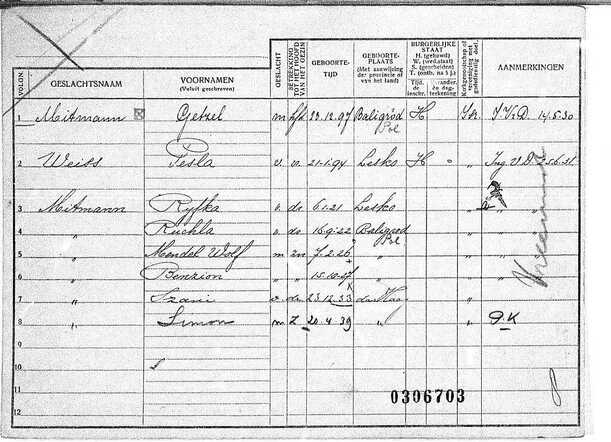 VOLGN. GESLACHTSNAAM VOORNAMEN (Voluit geschreven) GESLACHT BETREKKING TOT HET HOOFD VAN HET GEZIN GEBOORTE-TIJD GEBOORTE-PLAATS (Met aanwijzing der provincie of van het land) BURGERLIJKE STAAT H. (gehuwd) W. (wed.staat) S. (gescheiden) AANMERKINGEN
1 Mitmann Getzel m hfd 23.12.97 Baligród Pol H J.V.D. 14.5.30
2 Weiss Pesla v. v. 21-1-94 Lesko H "
3 Mitmann Ryfka v. dr 6.1.21 Lesko "
4 " Ruchla " " 16.9.22 Baligrod Pol "
5 " Mendel Wolf m zn 7.2.26 " "
6 " Benzion " " 15.10.27 " "
7 " Szani v dr 23.12.33 den Haag "
8 " Simon m Z 20.4.39 " " P.K
9
10
11
12
0306703
Vreemd